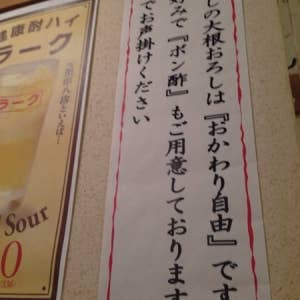 しの大根おろしは『おかわり自由』です
好みで『ポン酢』もご用意しております
でお声掛けください
酎ハイ
ラーク
Sour
0